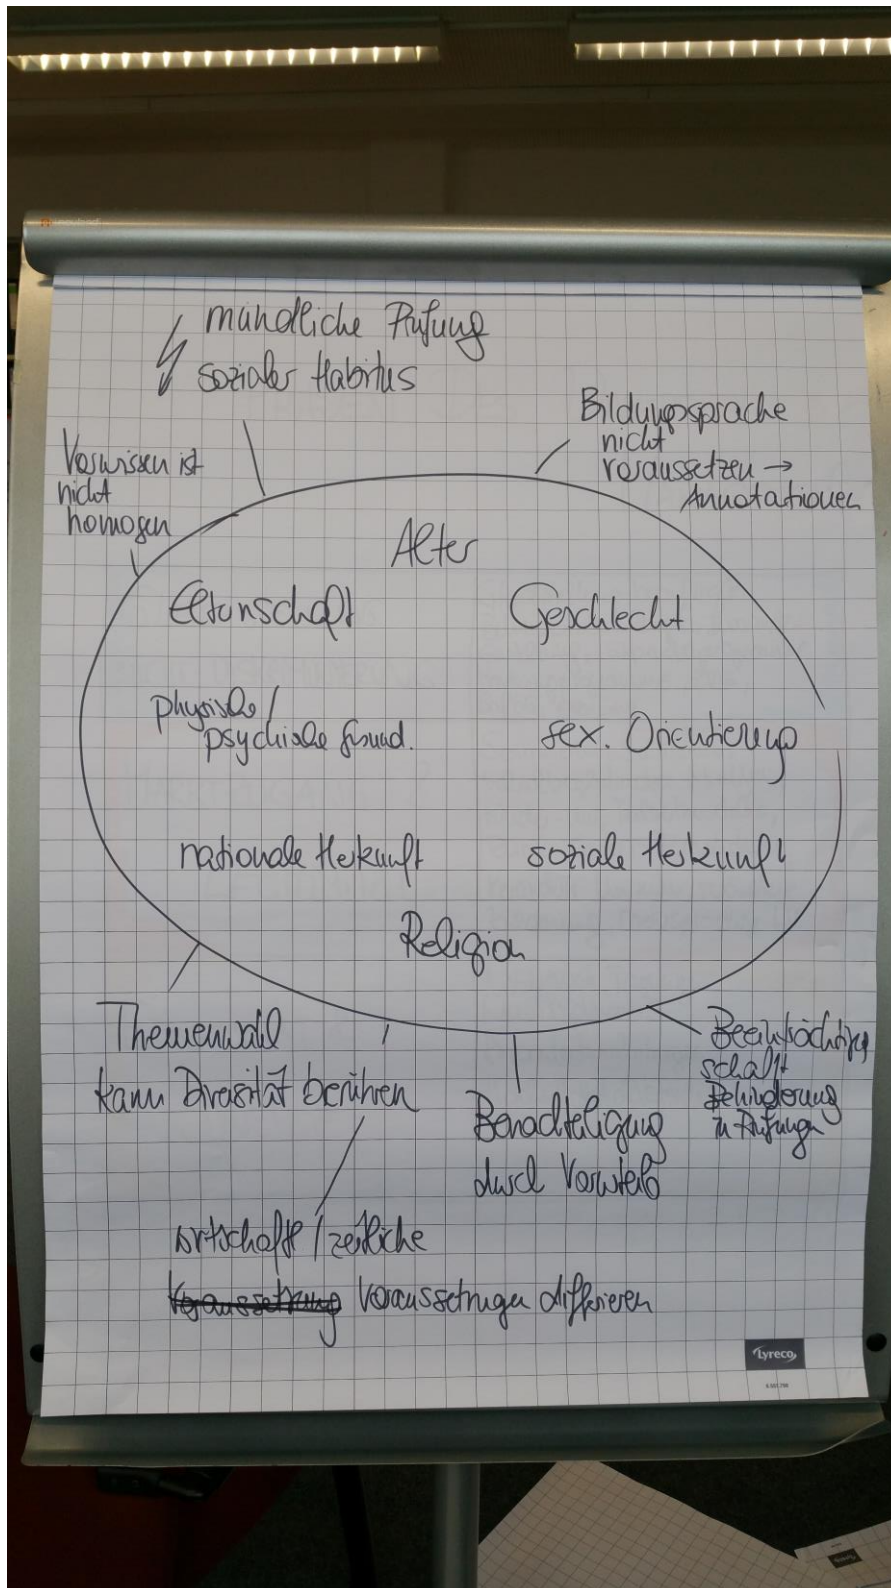 mündliche Prüfung
sozialer Habitus
Bildungssprache
nicht
voraussetzen →
Annotationen
Vorwissen ist
nicht
homogen
Alter
Elternschaft
Geschlecht
physische /
psychische Gesund.
sex. Orientierung
nationale Herkunft
soziale Herkunft
Religion
Themenwahl
kann Diversität berühren
Benachteiligung
durch Vorurteile
schafft
Behinderung
in Prüfungen
wirtschaftl / zeitliche
Voraussetzung Voraussetzungen differieren
Lyreco